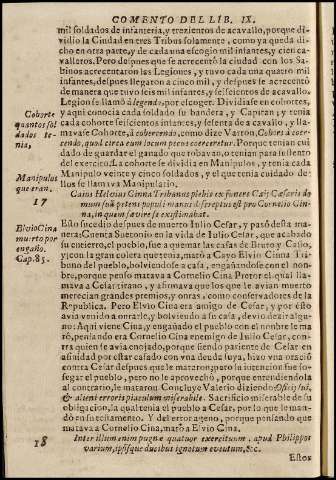 COMENTO DEL LIB. IX.
mil soldados de infanteria, y trezientos de acavallo, porque di-
vidio la Ciudad en tres Tribus solamente, como ya queda di-
cho en otra parte, y de cada una escogio mil infantes, y cien ca-
valleros. Pero despues que se acrecentò la ciudad con los Sa-
binos acrecentaron las Legiones, y tuvo cada una quatro mil
infantes, despues llegaron a cinco mil, y despues se acrecentò
de manera que tuvo seis mil infantes, y seiscientos de acavallo.
Legion se llamò à legendo, por escoger. Dividiase en cohortes,
Cohorte
quantos sol
dados tenia,
y aqui conocia cada soldado su bandera, y Capitan, y tenia
cada cohorte seiscientos infantes, y sesenta de acavallo, y lla-
mavase Cohorte, à cohercendo, como dize Varron, Cohors à coer-
cendo, quod circa eum locum pecus coerceretur. Porque tenian cui
dado de guardar el ganado que robavan, o tenian para sustento
del exercito. La cohorte se dividia en Manipulos, y tenia cada
Manipulos
que eran.
Manipulo veinte y cinco soldados, y el que tenia cuidado de-
llos se llamava Manipulario.
17
Caius Helvius Cinna Tribunus plebis ex funere Caij Cæsaris do
mum suã petens populi manus discreptus est pro Cornelio Cin-
na, in quem sævire se existimabat.
Elvio Cina
muerto por
engaño.
Cap. 85.
Esto sucedio despues de muerto Iulio Cesar, y pasò desta ma-
nera: Cuenta Suetonio en la vida de Iulio Cesar, que acabado
su entierro, el pueblo, fue a quemar las casas de Bruto y Casio,
y con la gran colera que tenia, matò a Cayo Elvio Cinna Tri-
buno del pueblo, bolviendose a casa, engañandose con el nom-
bre, porque pensò matava a Cornelio Cina Pretor el qual lla-
mava a Cesar tirano, y afirmava que los que le avian muerto
merecian grandes premios, y onras, como conservadores de la
Republica. Pero Elvio Cina era amigo de Cesar, y por esto
avia venido a onrarle, y bolviendo a su casa, devio dezir algu-
no: Aqui viene Cina, y engañado el pueblo con el nombre le ma
tò, pensando era Cornelio Cina enemigo de Iulio Cesar, con-
tra quien se avia enojado, porque siendo pariente de Cesar en
afinidad por estar casado con vna deuda suya, hizo vna oraciõ
contra Cesar despues que le mataron; pero su intencion fue sos-
segar el pueblo, pero no le aprovechò, porque entendiendola
al contrario, le mataron. Concluye Valerio diziendo: Officij sui,
& alieni erroris piaculum miserabile. Sacrificio miserable de su
obligacion, la qual tenia el pueblo a Cesar, por lo que le man-
dò en su testamento. Y del error ageno, porque pensando que
matava a Cornelio Cina, matò a Elvio Cina.
18
Inter illum enim pugnæ quatuor exercituum, apud Philippos
varium, ipsisque ducibus ignotum evẽtum, &c.
Estos